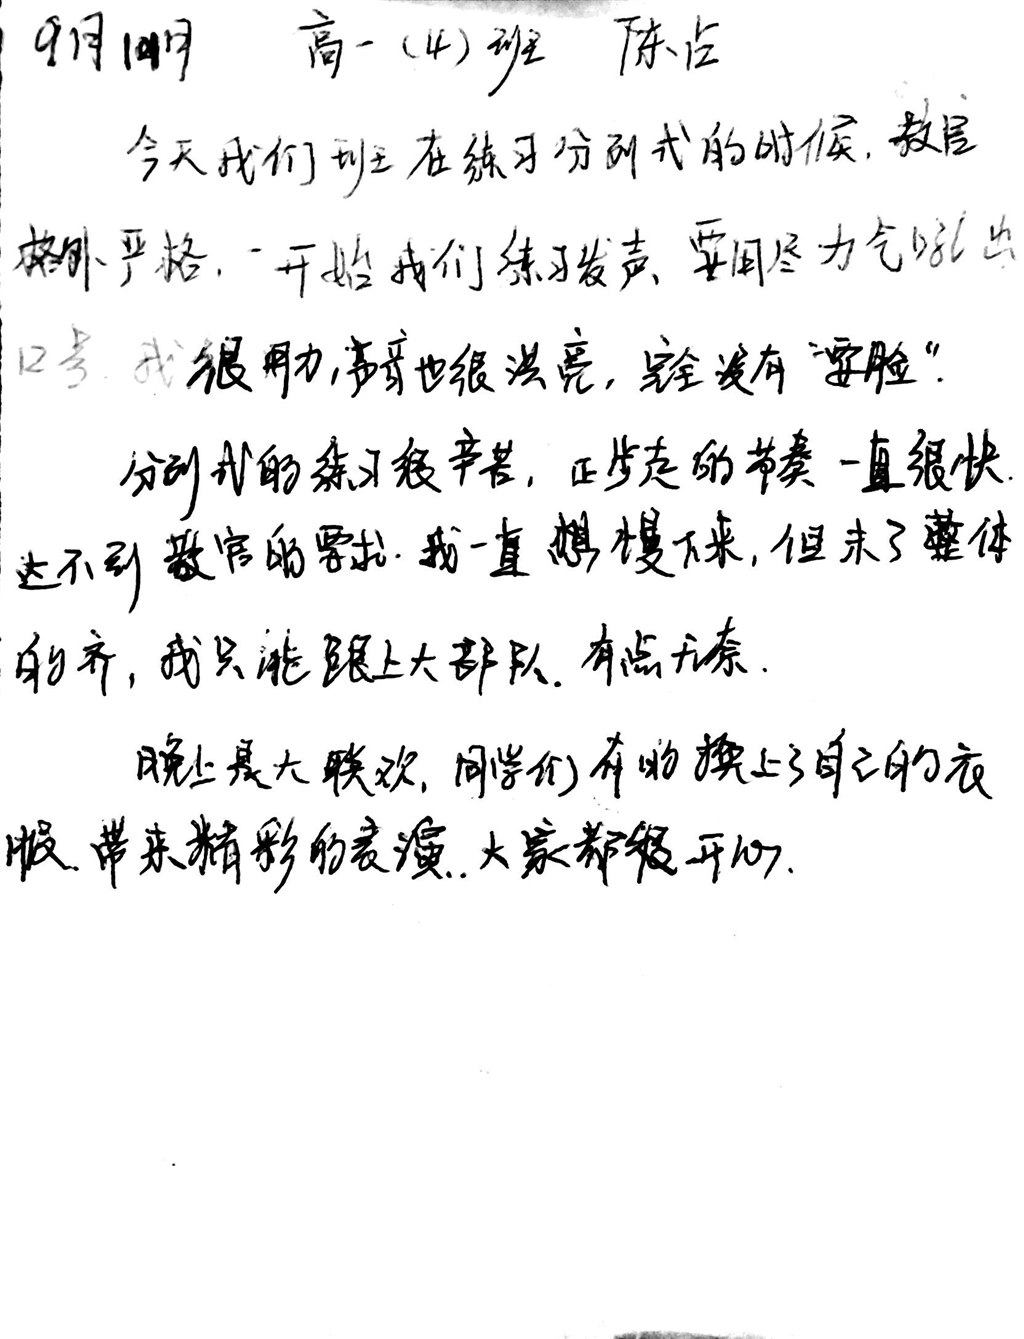 9月10日 高一(4)班 陈占
今天我们班在练习分列式的时候,教官
格外严格,一开始我们练习发声,要用尽力气吼出
口号.我很用力,声音也很洪亮,完全没有"要脸".
分列式的练习很辛苦,正步走的节奏一直很快.
达不到教官的要求.我一直想慢下来,但未了整体
的齐,我只能跟上大部队.有点无奈.
晚上是大联欢,同学们有的换上了自己的衣
服.带来精彩的表演..大家都很开心.